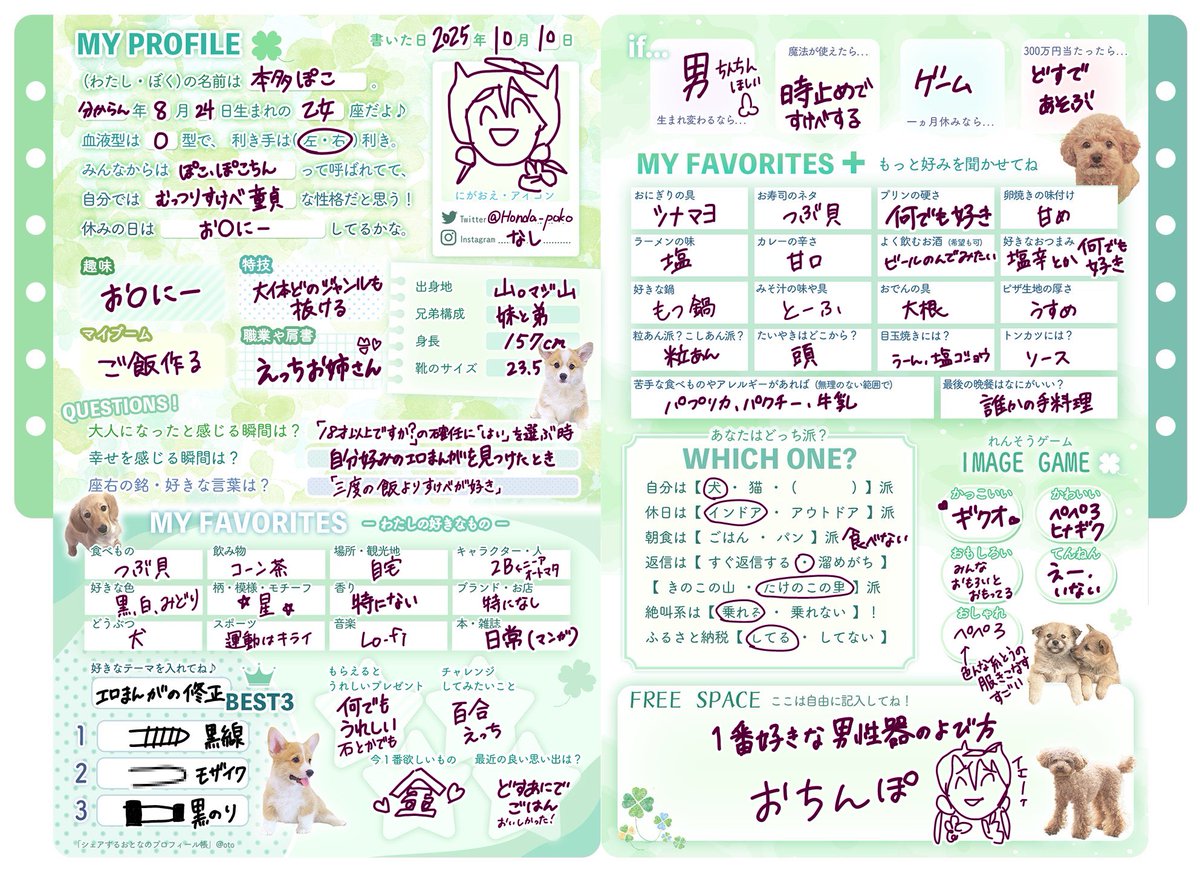 MY PROFILE
書いた日 2025年 10月 10日
(わたし・ぼく)の名前は 本多ぽこ 。
分からん年 8月 24日生まれの 乙女 座だよ♪
血液型は O 型で、利き手は(左・右)利き。
みんなからは ぽこ、ぽこちん って呼ばれてて、
自分では むっつりすけべ童貞 な性格だと思う!
休みの日は お○にー してるかな。
にがおえ・アイコン
Twitter @Honda-poko
Instagram なし
趣味
お○にー
特技
大体どのジャンルも
抜ける
マイブーム
ご飯作る
職業や肩書
えっちお姉さん
出身地 山。マジ山
兄弟構成 妹と弟
身長 157cm
靴のサイズ 23.5
QUESTIONS!
大人になったと感じる瞬間は? 「18才以上ですか?の確任に「はい」を選ぶ時
幸せを感じる瞬間は? 自分好みのエロまんがを見つけたとき
座右の銘・好きな言葉は? 「三度の飯よりすけべが好き」
MY FAVORITES ーわたしの好きなものー
食べもの つぶ貝
飲み物 コーン茶
場所・観光地 自宅
キャラクター・人 2B ニーアオートマタ
好きな色 黒、白、みどり
柄・模様・モチーフ ☆星☆
香り 特にない
ブランド・お店 特になし
どうぶつ 犬
スポーツ 運動はキライ
音楽 Lo-fi
本・雑誌 日常(マンガ)
好きなテーマを入れてね♪
エロまんがの修正
BEST3
1 黒線
2 モザイク
3 黒のり
もらえると
うれしいプレゼント
何でも
うれしい
石とかでも
チャレンジ
してみたいこと
百合
えっち
今1番欲しいもの
最近の良い思い出は?
どすあにで
ごはん
おいしかった!
「シェアするおとなのプロフィール帳」@oto
if...
男 ちんちん
ほしい
生まれ変わるなら...
魔法が使えたら...
時止めで
すけべする
ゲーム
一ヵ月休みなら...
300万円当たったら...
どすで
あそぶ
MY FAVORITES + もっと好みを聞かせてね
おにぎりの具 ツナマヨ
お寿司のネタ つぶ貝
プリンの硬さ 何でも好き
卵焼きの味付け 甘め
ラーメンの味 塩
カレーの辛さ 甘口
よく飲むお酒 (希望も可) ビールのんでみたい
好きなおつまみ 塩辛とか 何でも好き
好きな鍋 もつ鍋
みそ汁の味や具 とーふ
おでんの具 大根
ピザ生地の厚さ うすめ
粒あん派?こしあん派? 粒あん
たいやきはどこから? 頭
目玉焼きには? うーん、塩コショウ
トンカツには? ソース
苦手な食べものやアレルギーがあれば (無理のない範囲で) パプリカ、パクチー、牛乳
最後の晩餐はなにがいい? 誰かの手料理
あなたはどっち派?
WHICH ONE?
自分は【 犬 ・ 猫 ・ ( ) 】派
休日は【 インドア ・ アウトドア 】派
朝食は【 ごはん ・ パン 】派 食べない
返信は【 すぐ返信する ・ 溜めがち 】
【 きのこの山 ・ たけのこの里 】派
絶叫系は【 乗れる ・ 乗れない 】!
ふるさと納税【 してる ・ してない 】
れんそうゲーム
IMAGE GAME
かっこいい
ギクオ
かわいい
ペペろ
ヒナギク
おもしろい
みんな
おもろいと
おもってる
てんねん
えー、
いない
おしゃれ
ペペろ
↑
色んな系とうの
服きこなす
すごい
FREE SPACE ここは自由に記入してね!
1番好きな男性器のよび方
おちんぽ
イエーイ